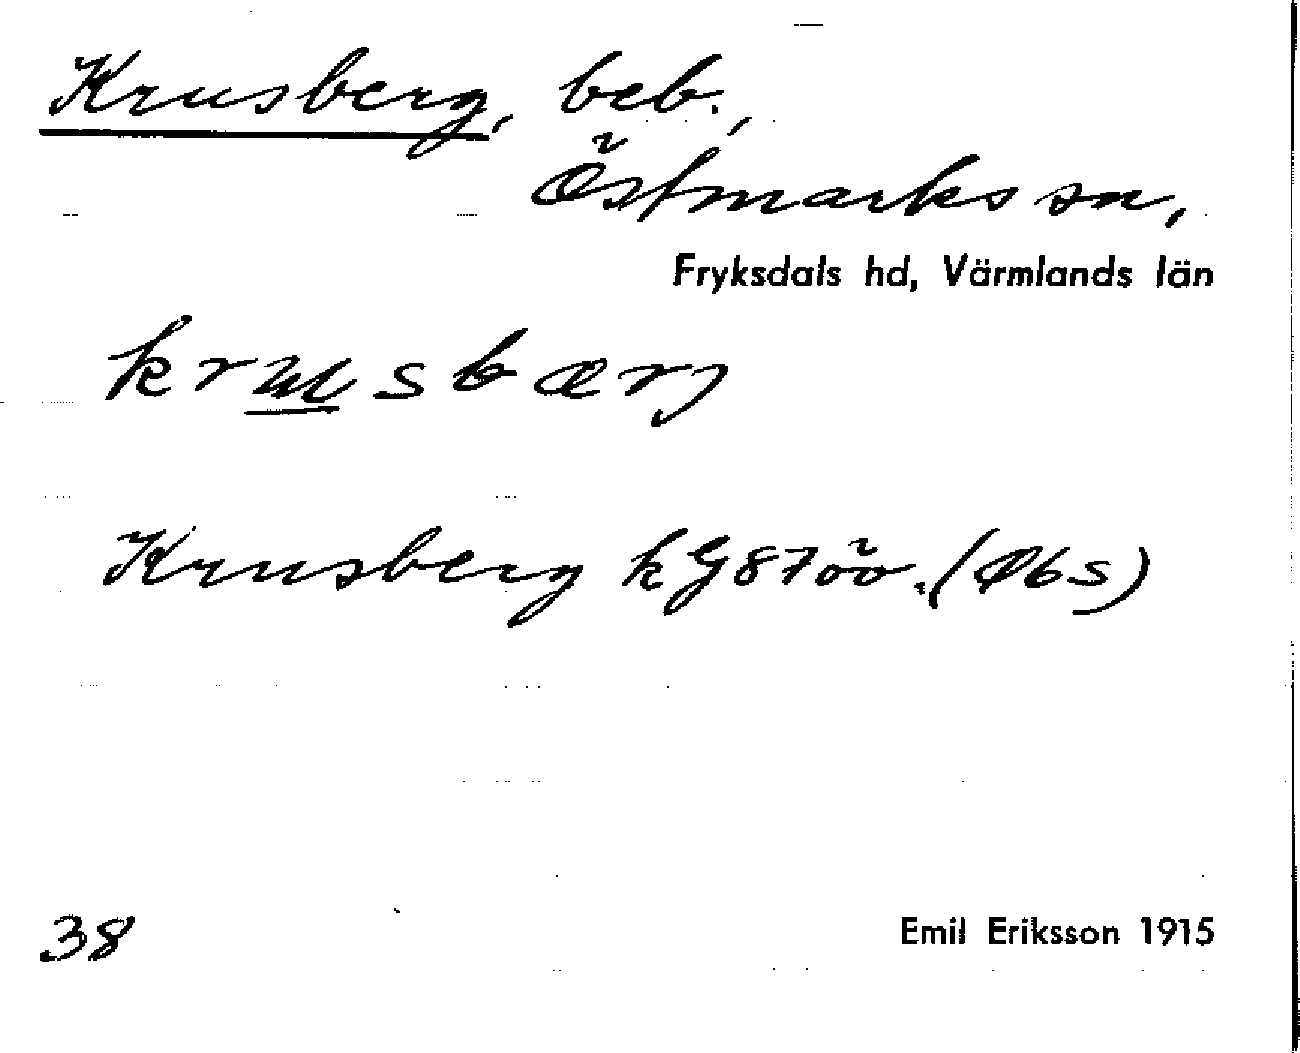 Krusberg, beb.,
Östmarks sn,
Fryksdals hd, Värmlands län
krusbærj
Krusberg kG87öö. (Øbs)
38
Emil Eriksson 1915